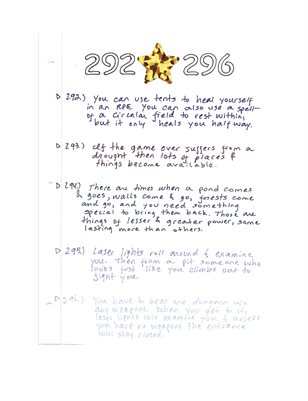 292 296
292.) You can use tents to heal yourself
in an RPG. You can also use a spell-
of a circular field to rest within,
but it only heals you half way.
293.) If the game ever suffers from a
drought then lots of places &
things become available.
294.) There are times when a pond comes
& goes, walls come & go, forests come
and go, and you need something
special to bring them back. Those are
things of lesser & greater power, some
lasting more than others.
295.) Laser lights roll around & examine
you. Then from a pit someone who
looks just like you climbs out to
fight you.
296.) You have to one dungeon w/o
any weapons. When you get to it,
laser lights will examine you & unless
you have no weapons the entrance
will stay closed.